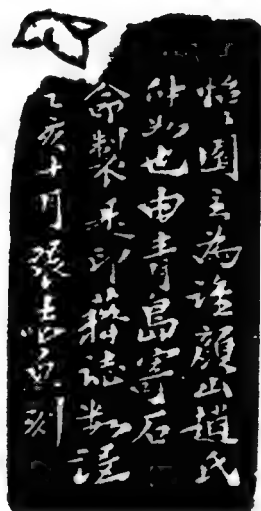 怡園主為證顏山趙氏
仲如也由青島寄石
命製是印藉誌數語
乙亥十月張志魚刻